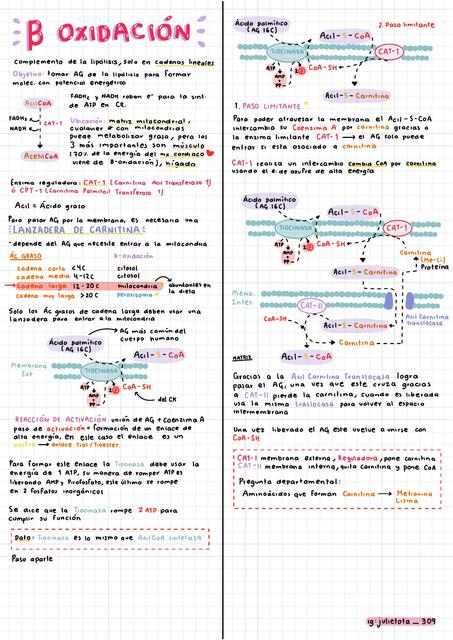 β OXIDACIÓN
Complemento de la lipólisis, solo en cadenas lineales
Objetivo: tomar AG de la lipólisis para formar
molec. con potencial energético
Acil CoA
FADH₂
NADH
CAT-1
AcetilCoA
FADH₂ y NADH roban e⁻ para la sint.
de ATP en CR.
Ubicación: matriz mitocondrial,
cualquier c con mitocondrias
puede metabolizar grasa, pero los
3 más importantes son músculo
(70% de la energía del mx cardiaco
viene de B-oxidación), hígado
Enzima reguladora: CAT-1 (Carnitina Acil Transferasa 1)
ó CPT-1 (Carnitina Palmitoil Trasferasa 1)
Acil = Ácido graso
Para pasar AG por la membrana, es necesaria una
LANZADERA DE CARNITINA
-depende del AG que necesite entrar a la mitocondria
ÁC GRASO B-oxidación
cadena corta <4C citosol
cadena media 4-12C citosol
cadena larga 12-20C mitocondria
cadena muy larga >20C peroxisoma
abundantes en
la dieta
Solo los Ác grasos de cadena larga deben usar una
lanzadera para entrar a la mitocondria
Ácido palmítico
(AG 16C)
AG más común del
cuerpo humano
Acil-S-CoA
Membrana
Ext
TIOCINASA
ATP
AMP
+
PP
2P
CoA-SH
del CK
REACCIÓN DE ACTIVACIÓN unión de AG + Coenzima A
paso de activación = Formación de un enlace de
alta energía, en este caso el enlace es un
azufre → enlace Tiol/Tioester
Para formar este enlace la Tiocinasa debe usar la
energía de 1 ATP, su manera de romper ATP es
liberando AMP y Pirofosfato, este último se rompe
en 2 fosfatos inorgánicos
Se dice que la Tiocinasa rompe 2 ATP para
cumplir su función
Dato: Tiocinasa es lo mismo que Acil CoA sintetasa
Paso aparte
Ácido palmítico
(AG 16C)
2. Paso limitante
Acil-S-CoA
TIOCINASA
CAT-1
ATP
AMP
+
PP
2P
CoA-SH
Acil-S-Carnitina
1. PASO LIMITANTE
Para poder atravesar la membrana el Acil-S-CoA
intercambia su Coenzima A por carnitina gracias a
la enzima limitante CAT-1 → el AG solo puede
entrar si esta asociado a carnitina
CAT-1 realiza un intercambio cambia CoA por carnitina
usando el e. de azufre de alta energía
Ácido palmítico
(AG 16C)
Acil-S-CoA
TIOCINASA
CAT-1
ATP
AMP
+
PP
2P
CoA-SH
Carnitina
(Me-Li)
Proteína
Acil-S-Carnitina
Memb.
Inter.
CAT-II
CoA-SH
Acil-S-Carnitina
Acil Carnitina
Translocasa
Carnitina
MATRIZ
Acil-S-CoA
Gracias a la Acil Carnitina Translocasa logra
pasar el AG, una vez que este cruza gracias
a CAT-II pierde la carnitina, cuando es liberada
usa la misma traslocasa para volver al espacio
intermembrana
Una vez liberado el AG este vuelve a unirse con
CoA-SH
CAT-I membrana externa, Reguladora, pone carnitina
CAT-II membrana interna, quita carnitina y pone CoA
Pregunta departamental:
Aminoácidos que forman Carnitina → Metionina
Lisina
ig: julietota_309